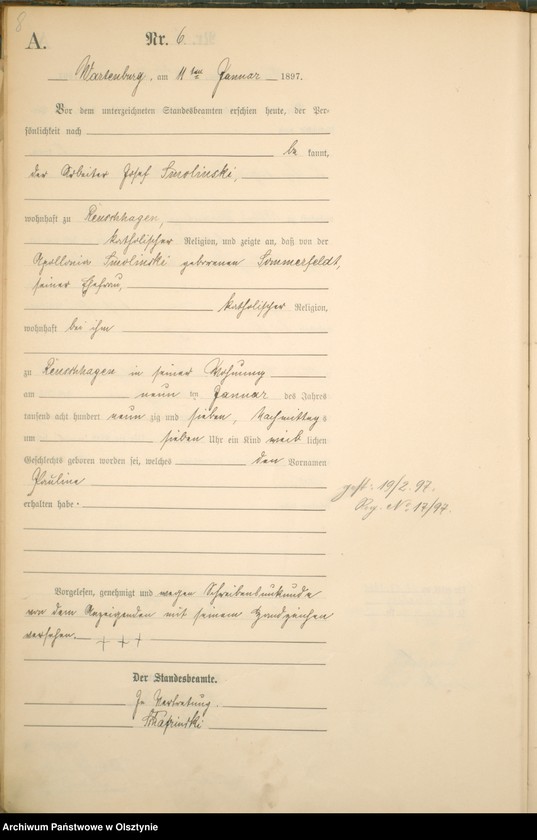 8
A.
Nr. 6.
Wartenburg, am 11ten Januar 1897.
Vor dem unterzeichneten Standesbeamten erschien heute, der Per-
sönlichkeit nach
be kannt,
der Arbeiter Josef Smolinski,
wohnhaft zu Reuschhagen,
katholischer Religion, und zeigte an, daß von der
Apollonia Smolinski geborenen Sommerfeldt,
seiner Ehefrau,
katholischer Religion,
wohnhaft bei ihm
zu Reuschhagen in seiner Wohnung
am neun ten Januar des Jahres
tausend acht hundert neun zig und sieben, Nachmittags
um sieben Uhr ein Kind weib lichen
Geschlechts geboren worden sei, welches den Vornamen
Pauline
gest. 19/2. 97.
erhalten habe.
Reg. No. 17/97.
Vorgelesen, genehmigt und wegen Schreibensunkunde
von dem Anzeigenden mit seinem Handzeichen
versehen. + + +
Der Standesbeamte.
In Vertretung.
Archiwum Państwowe w Olsztynie